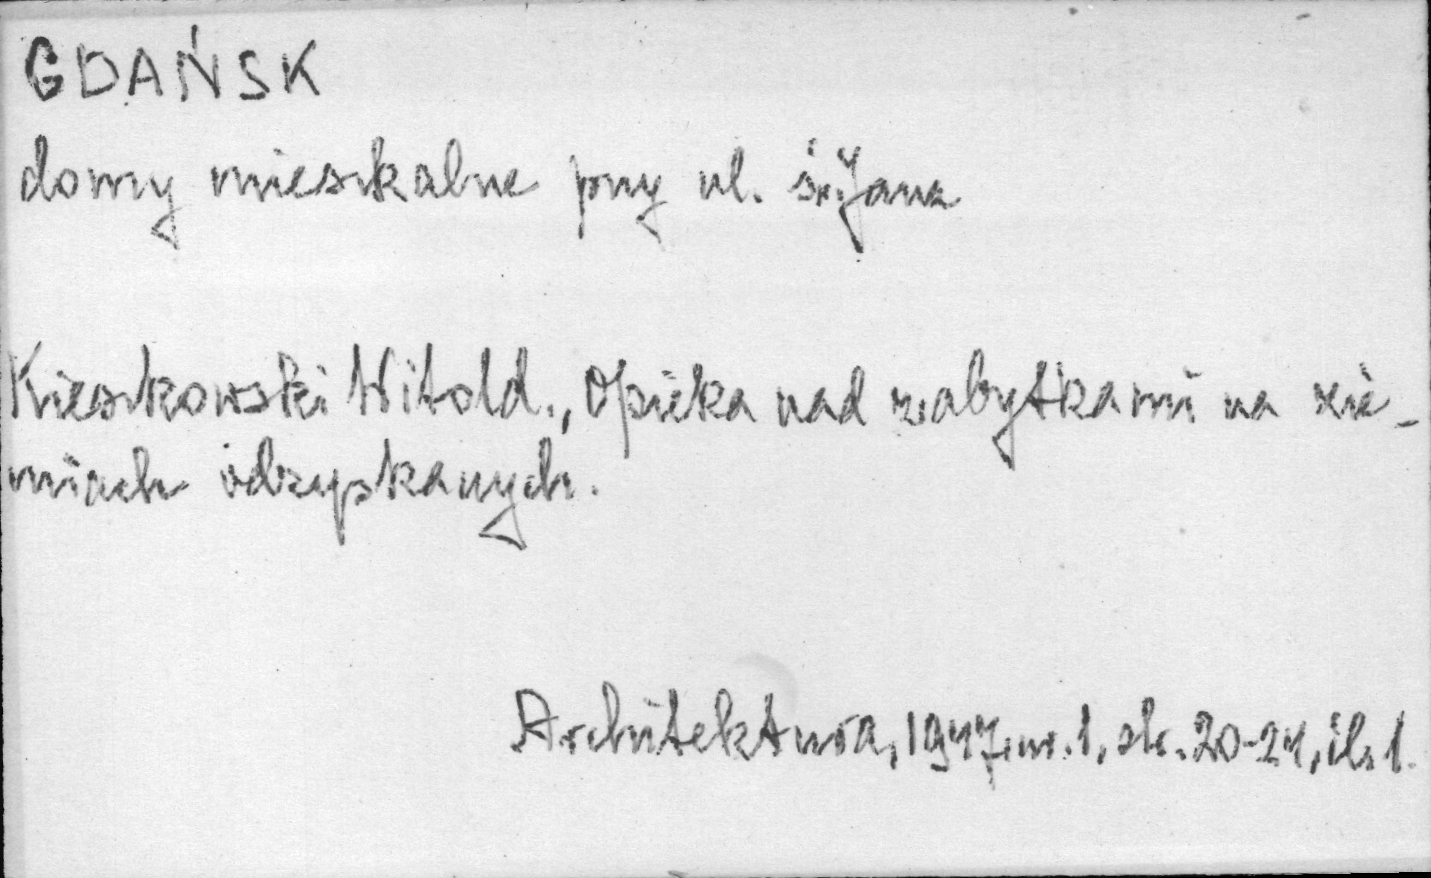 GDAŃSK
domy mieszkalne przy ul. św. Jana
Kieszkowski Witold., Opieka nad zabytkami na zie-
miach odzyskanych.
Architektura, 1947, nr. 1, str. 20-24, il. 1.